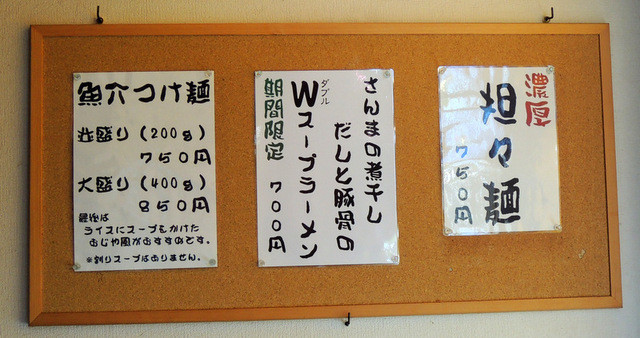 魚介つけ麺
並盛り(200g)
750円
大盛り(400g)
850円
最後は
ライスにスープをかけた
おじや風がおすすめです。
※割りスープはありません。
さんまの煮干し
だしと豚骨の
ダブル
Wスープラーメン
期間限定
700円
濃厚
担々麺
750円